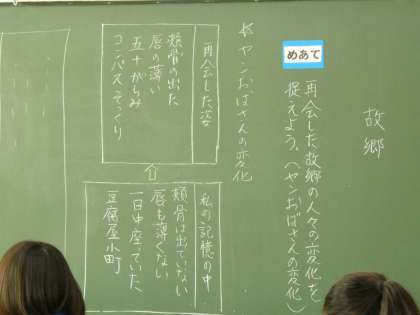 故郷
めあて
再会した故郷の人々の変化を
捉えよう。（ヤンおばさんの変化）
ヤンおばさんの変化
再会した姿
頬骨の出た
唇の薄い
五十がらみ
コンパスそっくり
私の記憶の中
頬骨は出ていない
唇も薄くない
一日中座っていた
豆腐屋小町